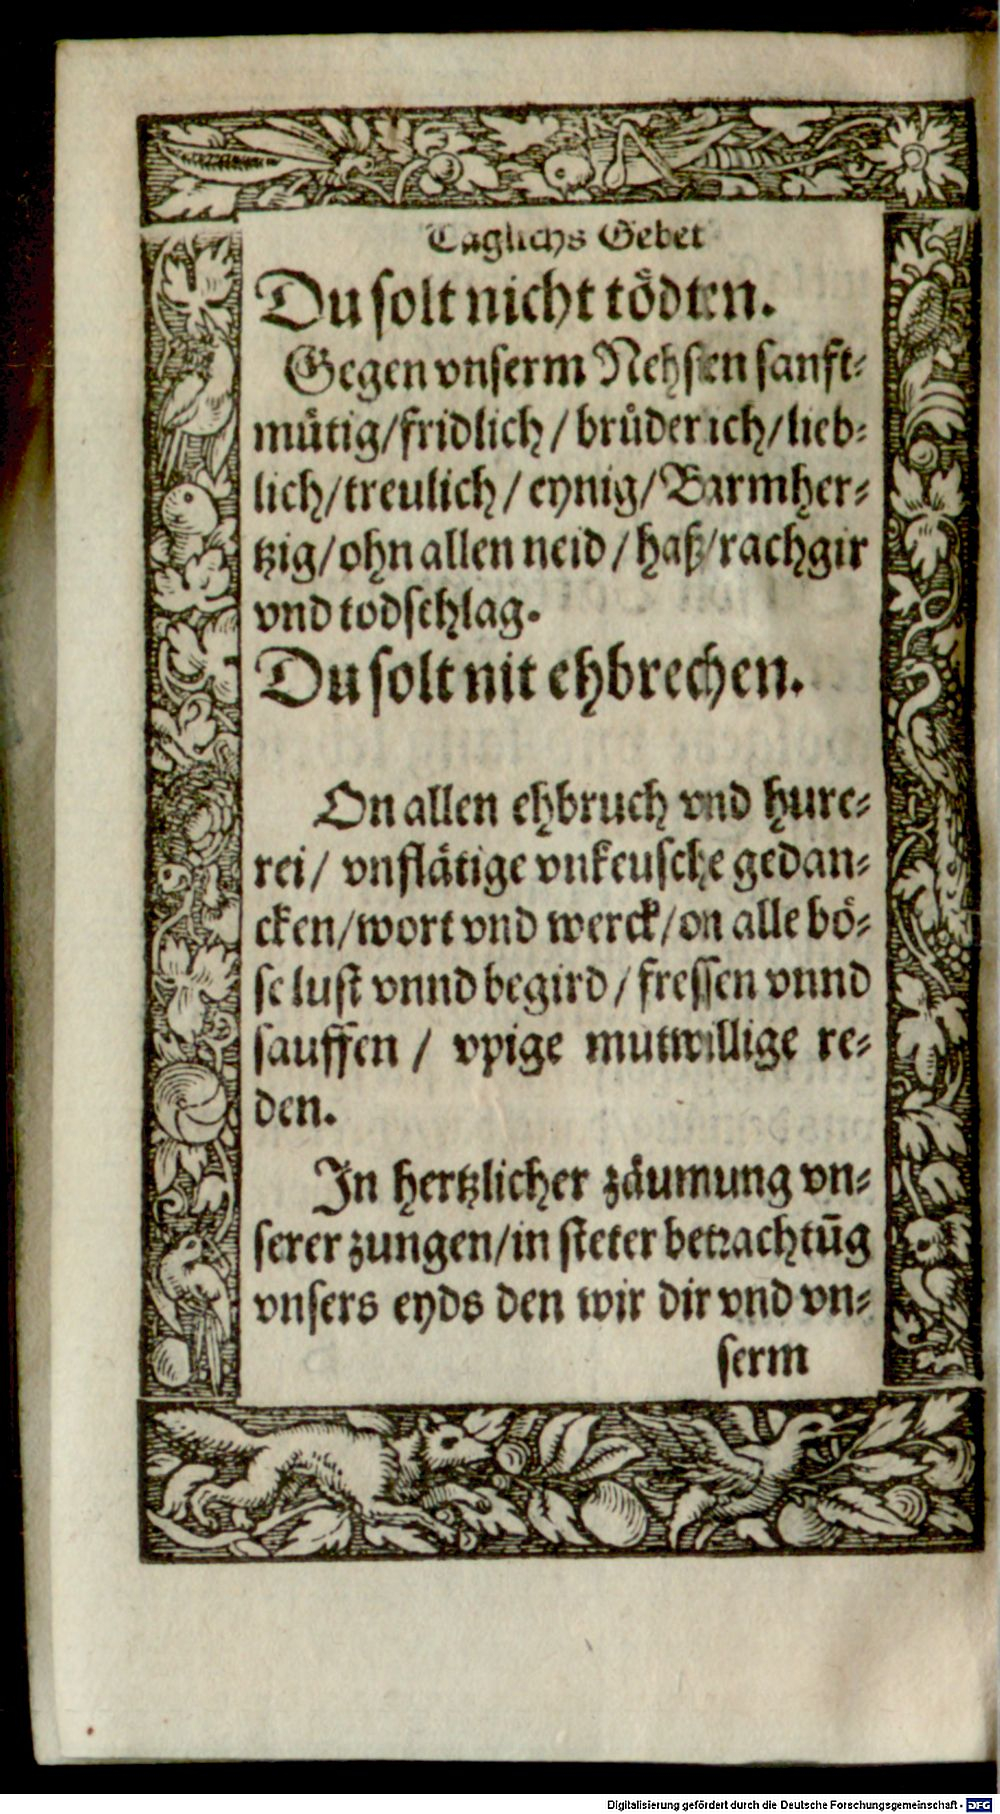 Taglichs Gebet
Du solt nicht tödten.
Gegen vnserm Nehsten sanfft-
mütig/fridlich/brüderlich/lieb-
lich/treulich/eynig/Barmher-
tzig/ohn allen neid/haß/rachgir
vnd todschlag.
Du solt nit ehbrechen.
On allen ehbruch vnd hure-
rei/ vnflätige vnkeusche gedan-
cken/wort vnd werck/on alle bö-
se lust vnnd begird/fressen vnnd
sauffen/ vpige mutwillige re-
den.
In hertzlicher zäumung vn-
serer zungen/in steter betrachtūg
vnsers eyds den wir dir vnd vn-
serm
Digitalisierung gefördert durch die Deutsche Forschungsgemeinschaft - DFG